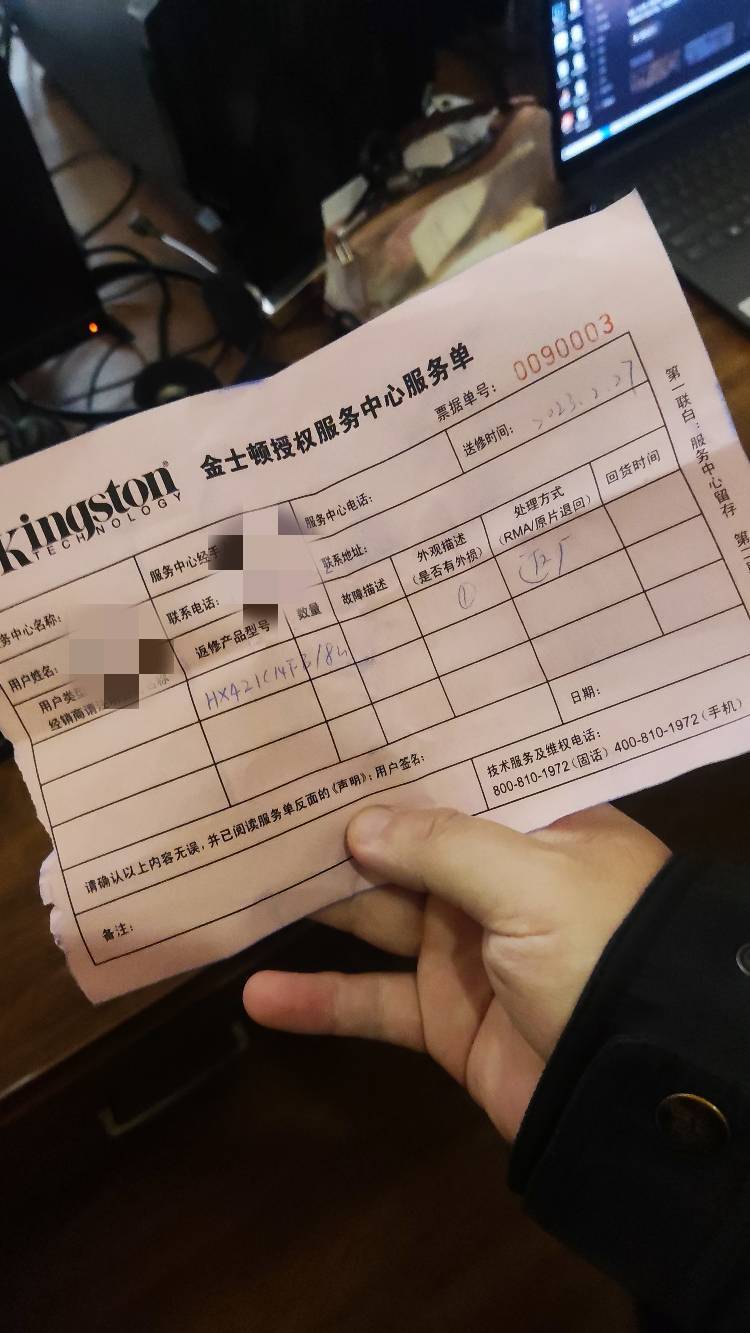 Kingston®
TECHNOLOGY
金士顿授权服务中心服务单
票据单号：
0090003
送修时间：
2023.2.27
务中心名称：
服务中心经手
服务中心电话：
用户姓名：
联系电话：
联系地址：
用户类型
经销商请
返修产品型号
数量
故障描述
外观描述
（是否有外损）
处理方式
（RMA/原片退回）
回货时间
HX421C14FB/8
①
请确认以上内容无误，并已阅读服务单反面的《声明》；用户签名：
日期：
技术服务及维权电话：
800-810-1972（固话）400-810-1972（手机）
备注：
第一联白：服务中心留存
第二